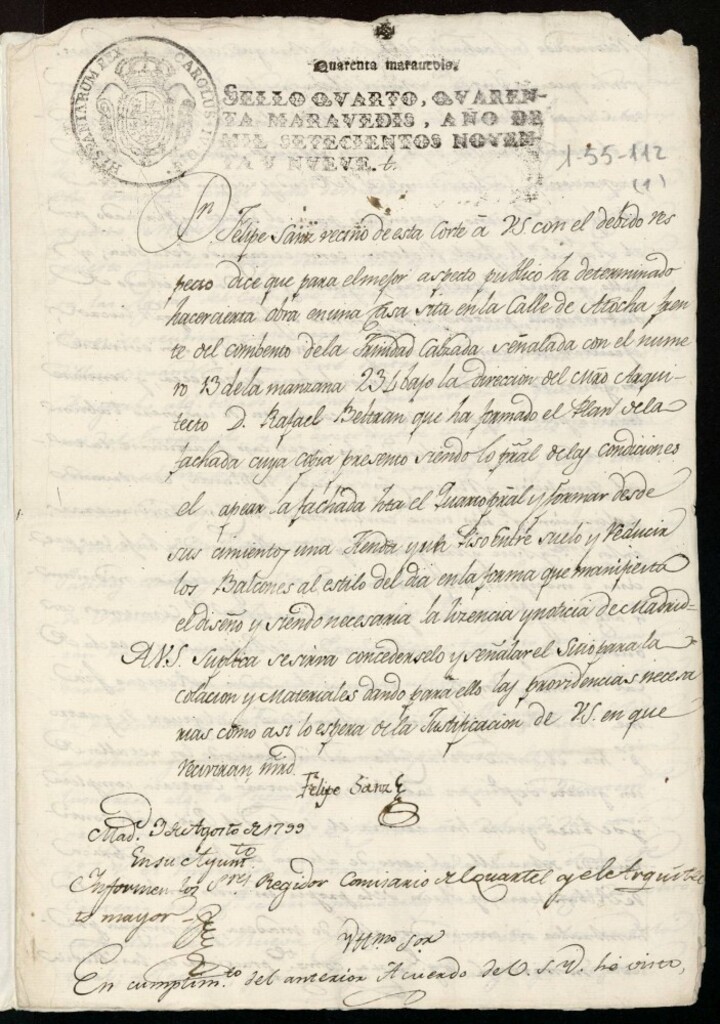 Quarenta maravedis.
HISPANIARUM REX CAROLUS IV D. G.
SELLO QVARTO, QVAREN-
TA MARAVEDIS, AÑO DE
MIL SETECIENTOS NOVEN-
TA Y NVEVE.
1-55-112
(1)
Dn Felipe Sanz vecino de esta Corte â VS con el debido res
pecto dice que para el mejor aspecto publico ha determinado
hacer cierta obra en una Casa sita en la Calle de Atocha fren
te del combento de la Trinidad Calzada señalada con el nume
ro 13 de la manzana 234 bajo la direccion del Mro Arqui-
tecto D. Rafael Beltran que ha formado el Plan de la
fachada cuya copia presento siendo lo pral de las condiciones
el apear la fachada hta el Quarto pral y formar desde
sus cimientos una Tienda y un Piso Entre suelo y Reducir
los Balcones al estilo del dia en la forma que manifiesta
el diseño y siendo necesaria la lizencia y noticia de Madrid
A V.S. suplica se sirva concederselo y señalar el Sitio para la
colacion y Materiales dando para ello las providencias necesa
rias como asi lo espera de la Justificacion de VS. en que
reciviran mrd.
Felipe Sanz
Madd. 9 de Agosto de 1799
En su Ayuntto
Informen los Sres Regidor Comisario del Quartel y el Arquitec
to mayor
Yllmo Sor
En cumplimto del anterior Acuerdo de V.S.Y. hè visto,